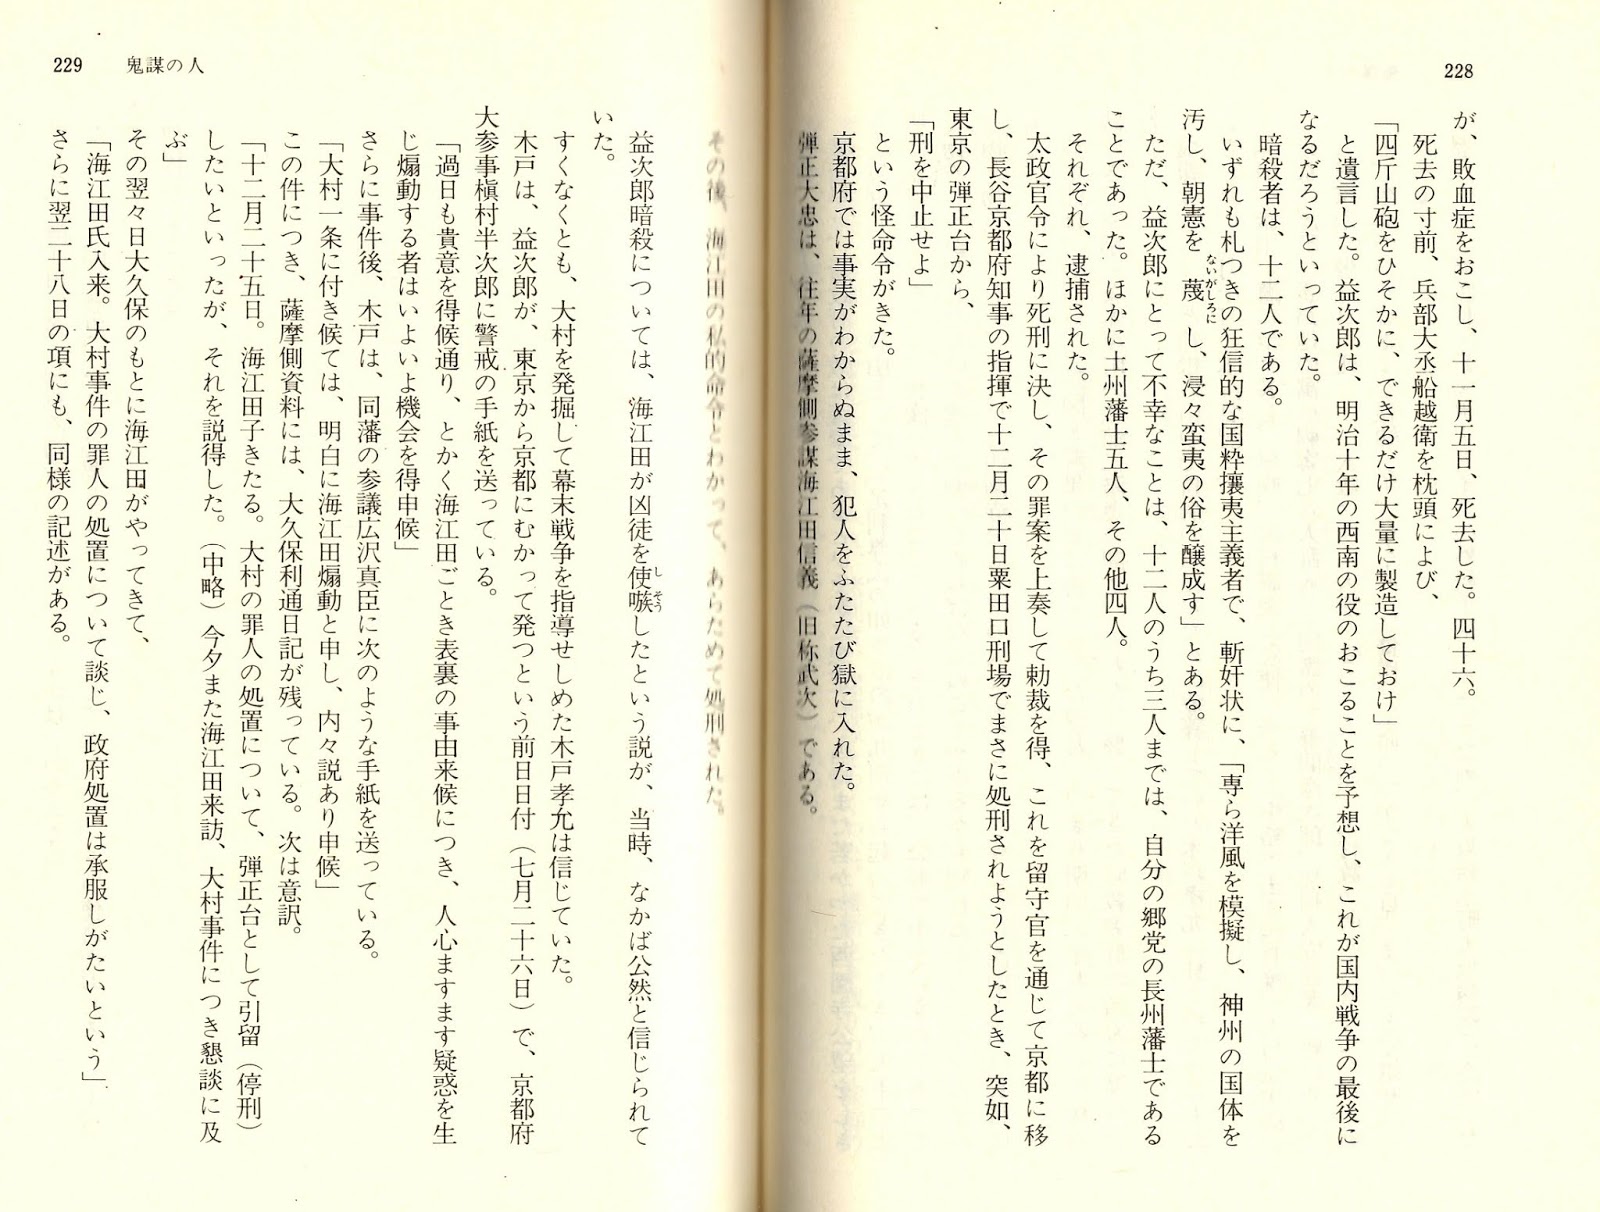 228
が、敗血症をおこし、十一月五日、死去した。四十六。
死去の寸前、兵部大丞船越衛を枕頭によび、
「四斤山砲をひそかに、できるだけ大量に製造しておけ」
と遺言した。益次郎は、明治十年の西南の役のおこることを予想し、これが国内戦争の最後に
なるだろうといっていた。
暗殺者は、十二人である。
いずれも札つきの狂信的な国粋攘夷主義者で、斬奸状に、「専ら洋風を模擬し、神州の国体を
汚し、朝憲を蔑ないがしろにし、浸々蛮夷の俗を醸成す」とある。
ただ、益次郎にとって不幸なことは、十二人のうち三人までは、自分の郷党の長州藩士である
ことであった。ほかに土州藩士五人、その他四人。
それぞれ、逮捕された。
太政官令により死刑に決し、その罪案を上奏して勅裁を得、これを留守官を通じて京都に移
し、長谷京都府知事の指揮で十二月二十日粟田口刑場でまさに処刑されようとしたとき、突如、
東京の弾正台から、
「刑を中止せよ」
という怪命令がきた。
京都府では事実がわからぬまま、犯人をふたたび獄に入れた。
弾正大忠は、往年の薩摩側参謀海江田信義（旧称武次）である。
229 鬼謀の人
その後、海江田の私的命令とわかって、あらためて処刑された。
益次郎暗殺については、海江田が凶徒を使嗾しそうしたという説が、当時、なかば公然と信じられて
いた。
すくなくとも、大村を発掘して幕末戦争を指導せしめた木戸孝允は信じていた。
木戸は、益次郎が、東京から京都にむかって発つという前日日付（七月二十六日）で、京都府
大参事槇村半次郎に警戒の手紙を送っている。
「過日も貴意を得候通り、とかく海江田ごとき表裏の事由来候につき、人心ますます疑惑を生
じ煽動する者はいよいよ機会を得申候」
さらに事件後、木戸は、同藩の参議広沢真臣に次のような手紙を送っている。
「大村一条に付き候ては、明白に海江田煽動と申し、内々説あり申候」
この件につき、薩摩側資料には、大久保利通日記が残っている。次は意訳。
「十二月二十五日。海江田子きたる。大村の罪人の処置について、弾正台として引留（停刑）
したいといったが、それを説得した。（中略）今夕また海江田来訪、大村事件につき懇談に及
ぶ」
その翌々日大久保のもとに海江田がやってきて、
「海江田氏入来。大村事件の罪人の処置について談じ、政府処置は承服しがたいという」
さらに翌二十八日の項にも、同様の記述がある。